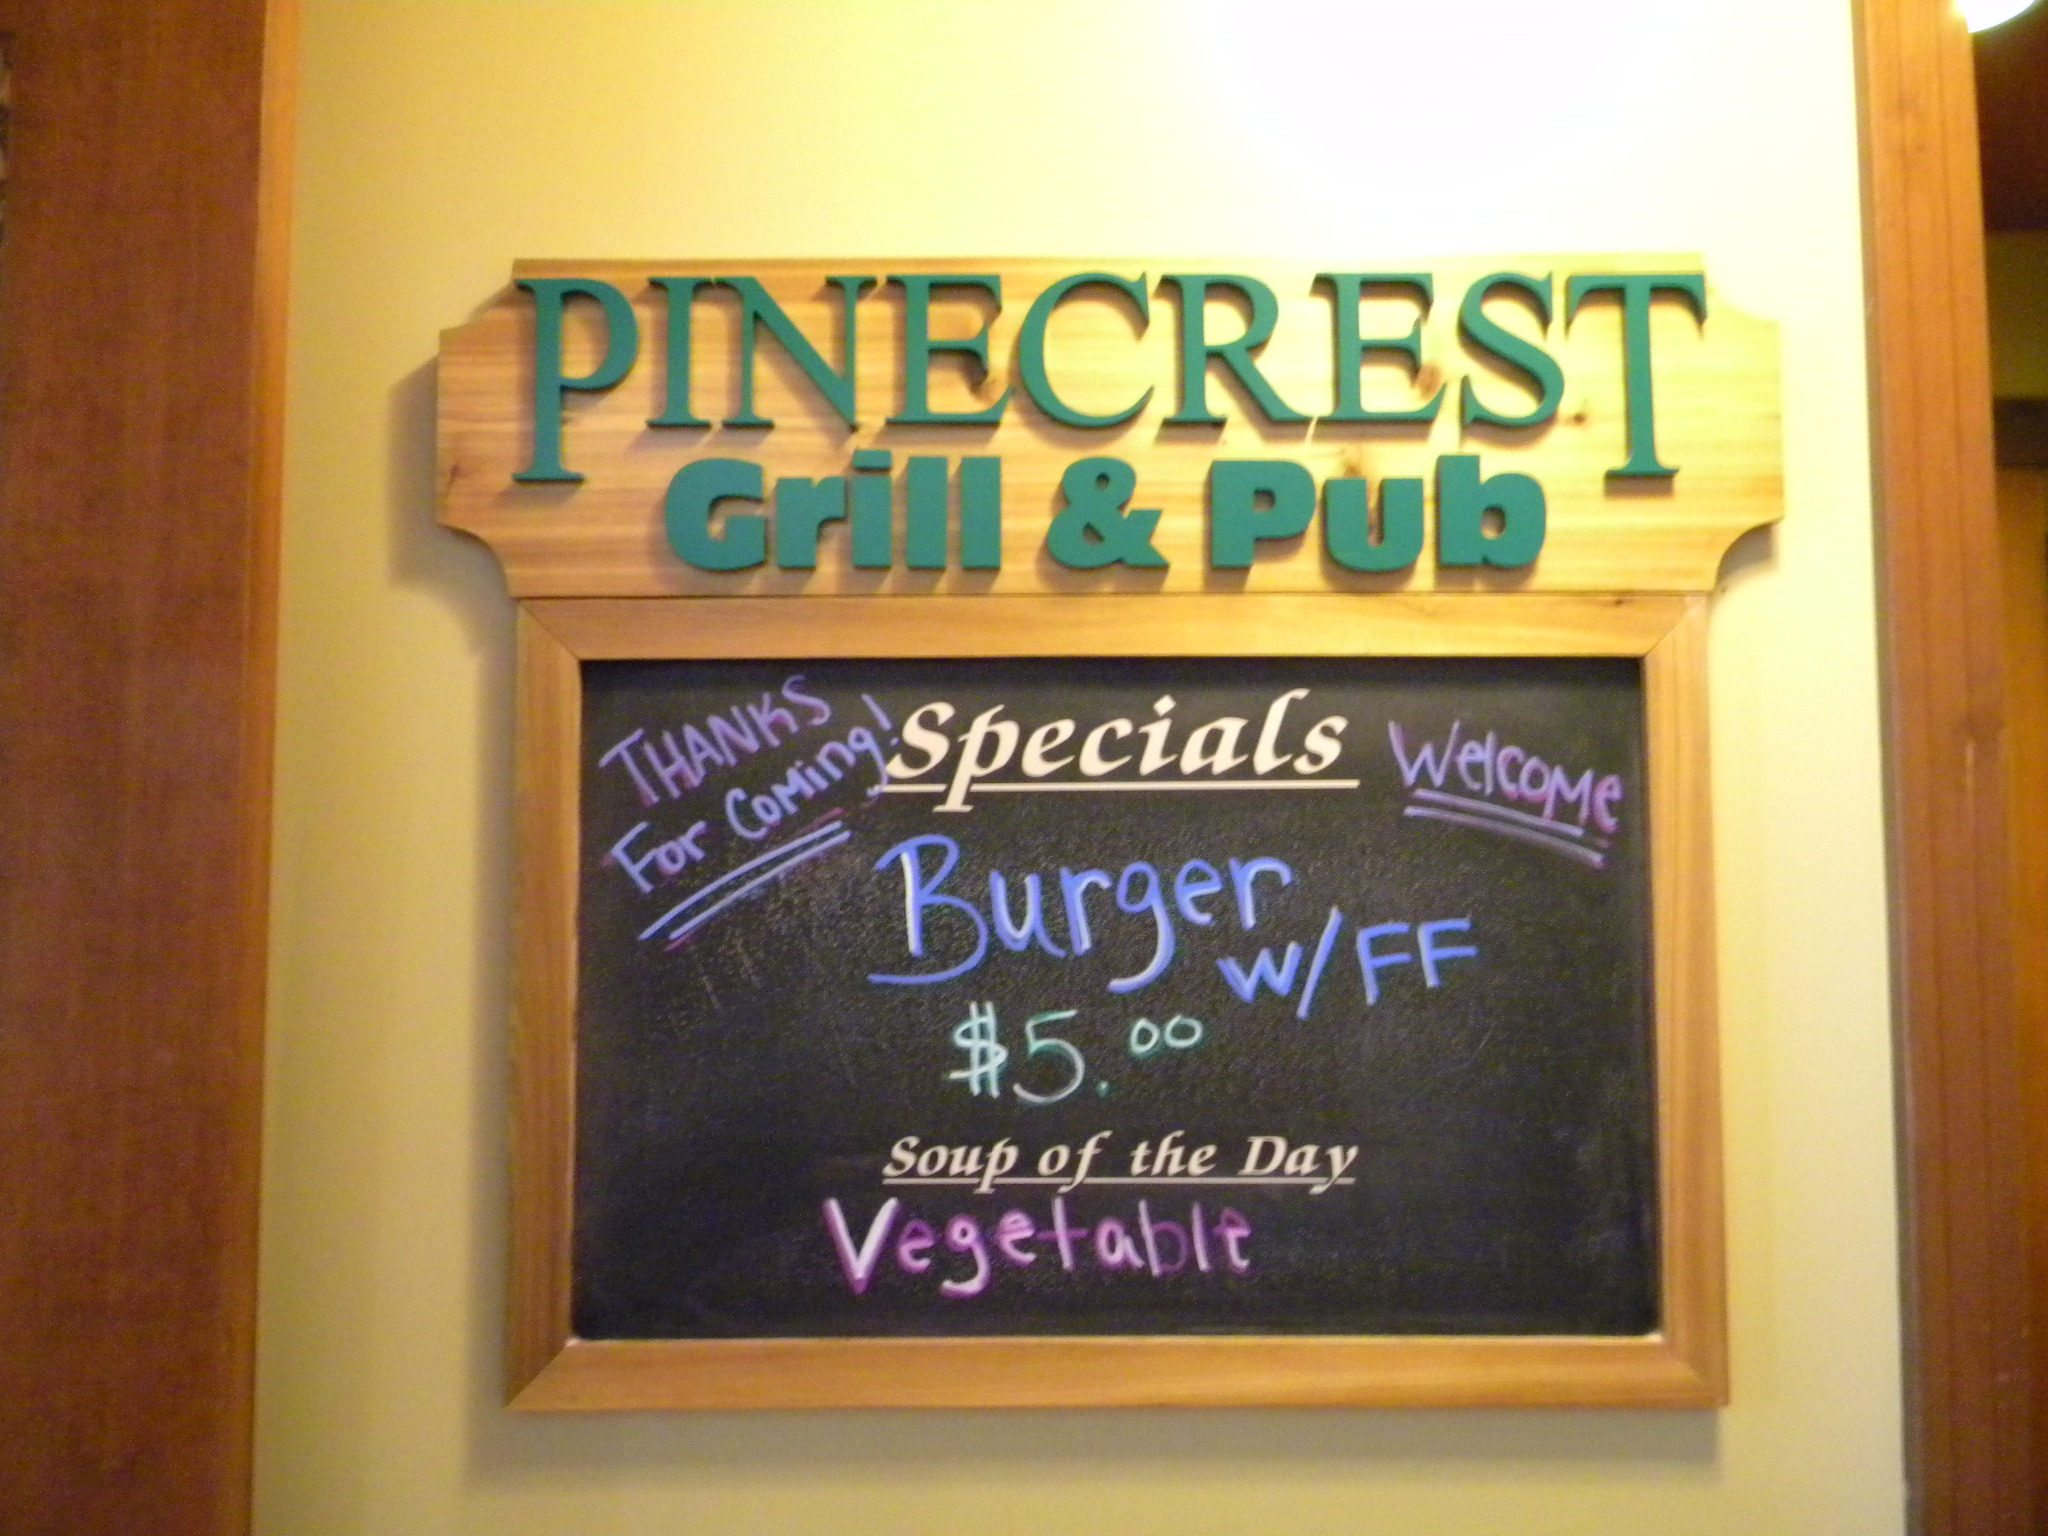 PINECREST
Grill & Pub
THANKS
For Coming!
Specials
Welcome
Burger
w/FF
$5.00
Soup of the Day
Vegetable